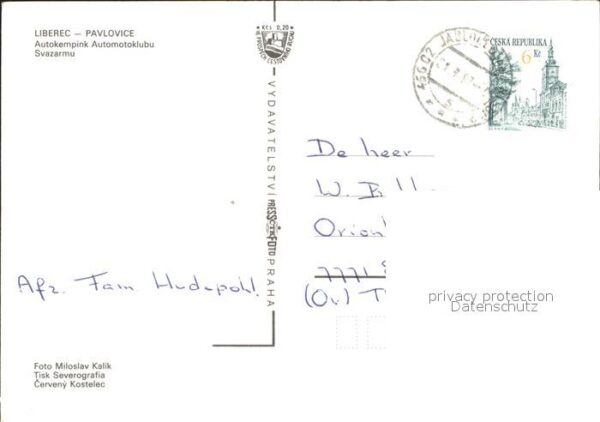 LIBEREC – PAVLOVICE
Autokempink Automotoklubu
Svazarmu
Kčs 0,20
VYDAVATELSTVÍ PRESSFOTO PRAHA
466 02 JABLO
ČESKÁ REPUBLIKA
6 Kč
De heer
W.
Orion
7771
(Ov.) T
Afz. Fam Hudepohl.
privacy protection
Datenschutz
Foto Miloslav Kalík
Tisk Severografia
Červený Kostelec